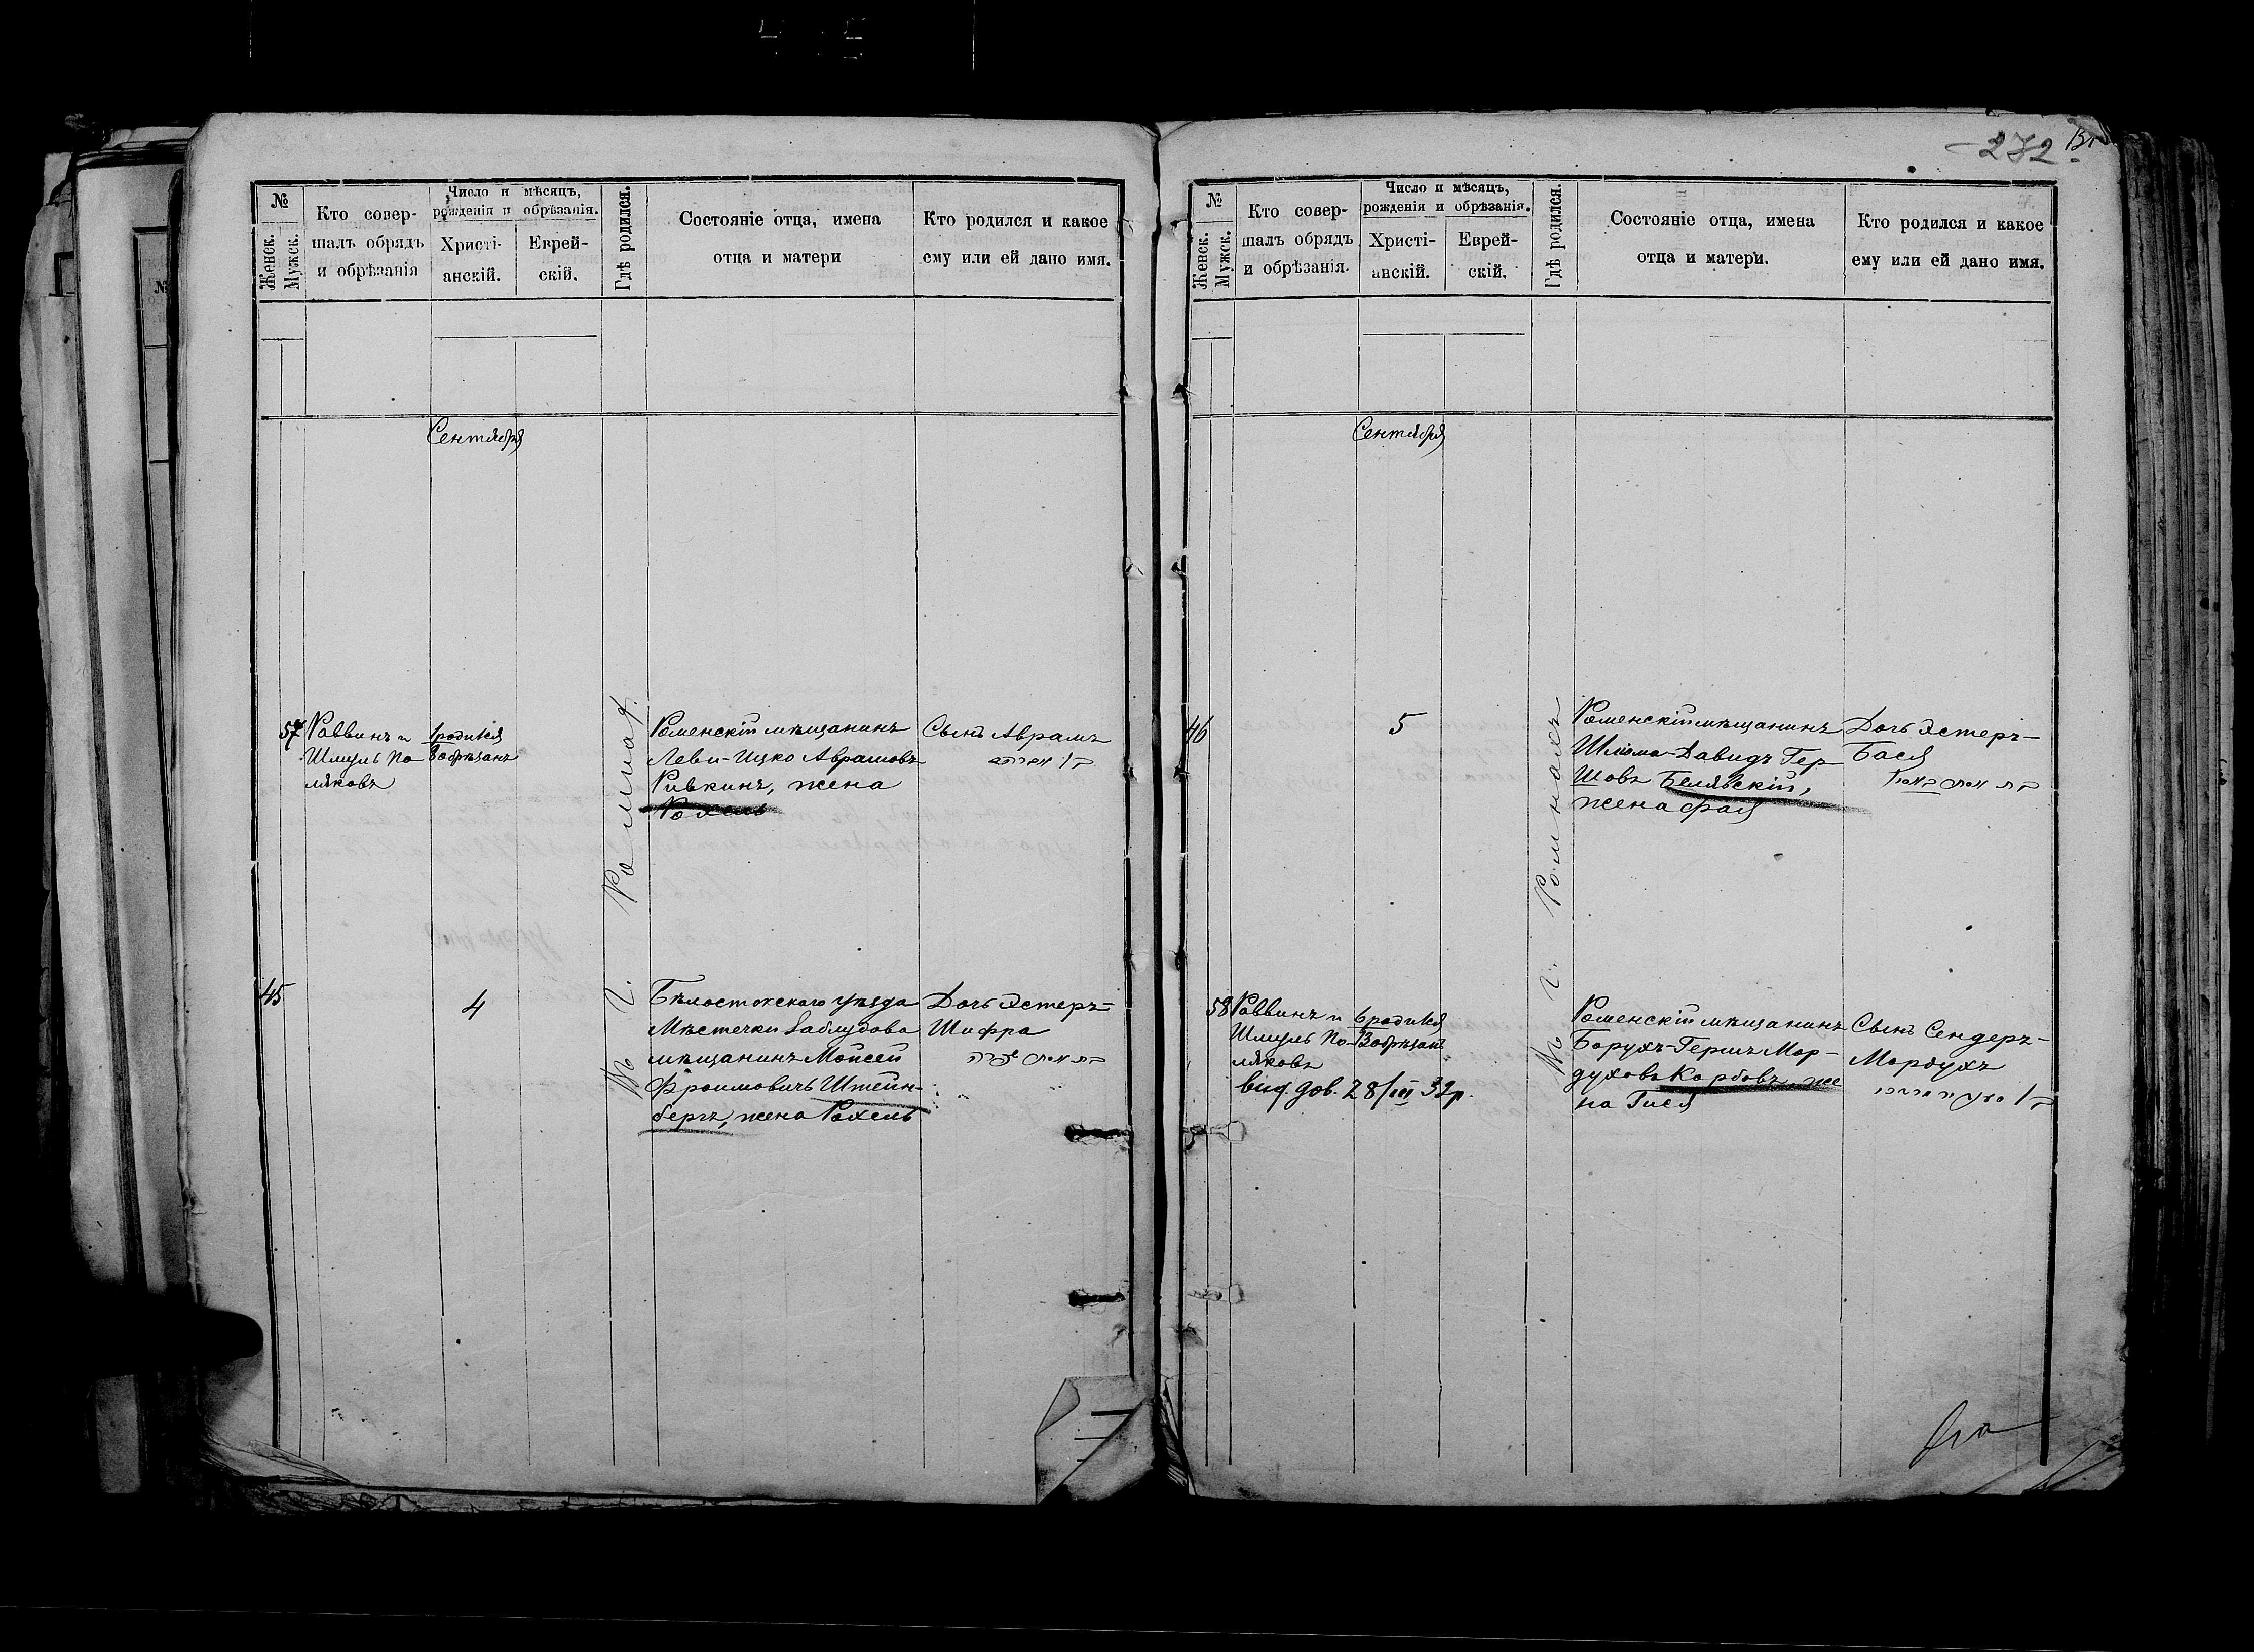 272
№
Женск.
Мужск.
Кто совер-
шалъ обрядъ
и обрѣзанія
Число и мѣсяцъ,
рожденія и обрѣзанія.
Христі-
анскій.
Еврей-
скій.
Гдѣ родился.
Состояніе отца, имена
отца и матери
Кто родился и какое
ему или ей дано имя.
Сентября
57
Раввинъ и
Шмуль По-
ляковъ
1 родился
8 обрѣзанъ
Роменскій мѣщанинъ
Леви-Ицко Аврамовъ
Ривкинъ, жена
Рохель
Сынъ Аврамъ
45
4
Бѣлостокскаго уѣзда
Мѣстечки Заблудова
мѣщанинъ Мойсей
Фроимовичъ Штейн-
бергъ, жена Рохель
Дочь Эстеръ-
Шифра
Въ г. Ромнах.
№
Женск.
Мужск.
Кто совер-
шалъ обрядъ
и обрѣзанія.
Число и мѣсяцъ,
рожденія и обрѣзанія.
Христі-
анскій.
Еврей-
скій.
Гдѣ родился.
Состояніе отца, имена
отца и матери.
Кто родился и какое
ему или ей дано имя.
Сентября
46
5
Роменскій мѣщанинъ
Шлома-Давидъ Гер
шовъ Белявскій,
жена Фаля
Дочь Эстеръ-
Бася
58
Раввинъ и
Шмуль По-
ляковъ
6 родился
13 обрѣзанъ
вид. дов. 28/III 32р.
Роменскій мѣщанинъ
Борухъ-Гершъ Мор-
духовъ Корбовъ, же
на Гися
Сынъ Сендеръ-
Мордухъ
Въ г. Ромнахъ